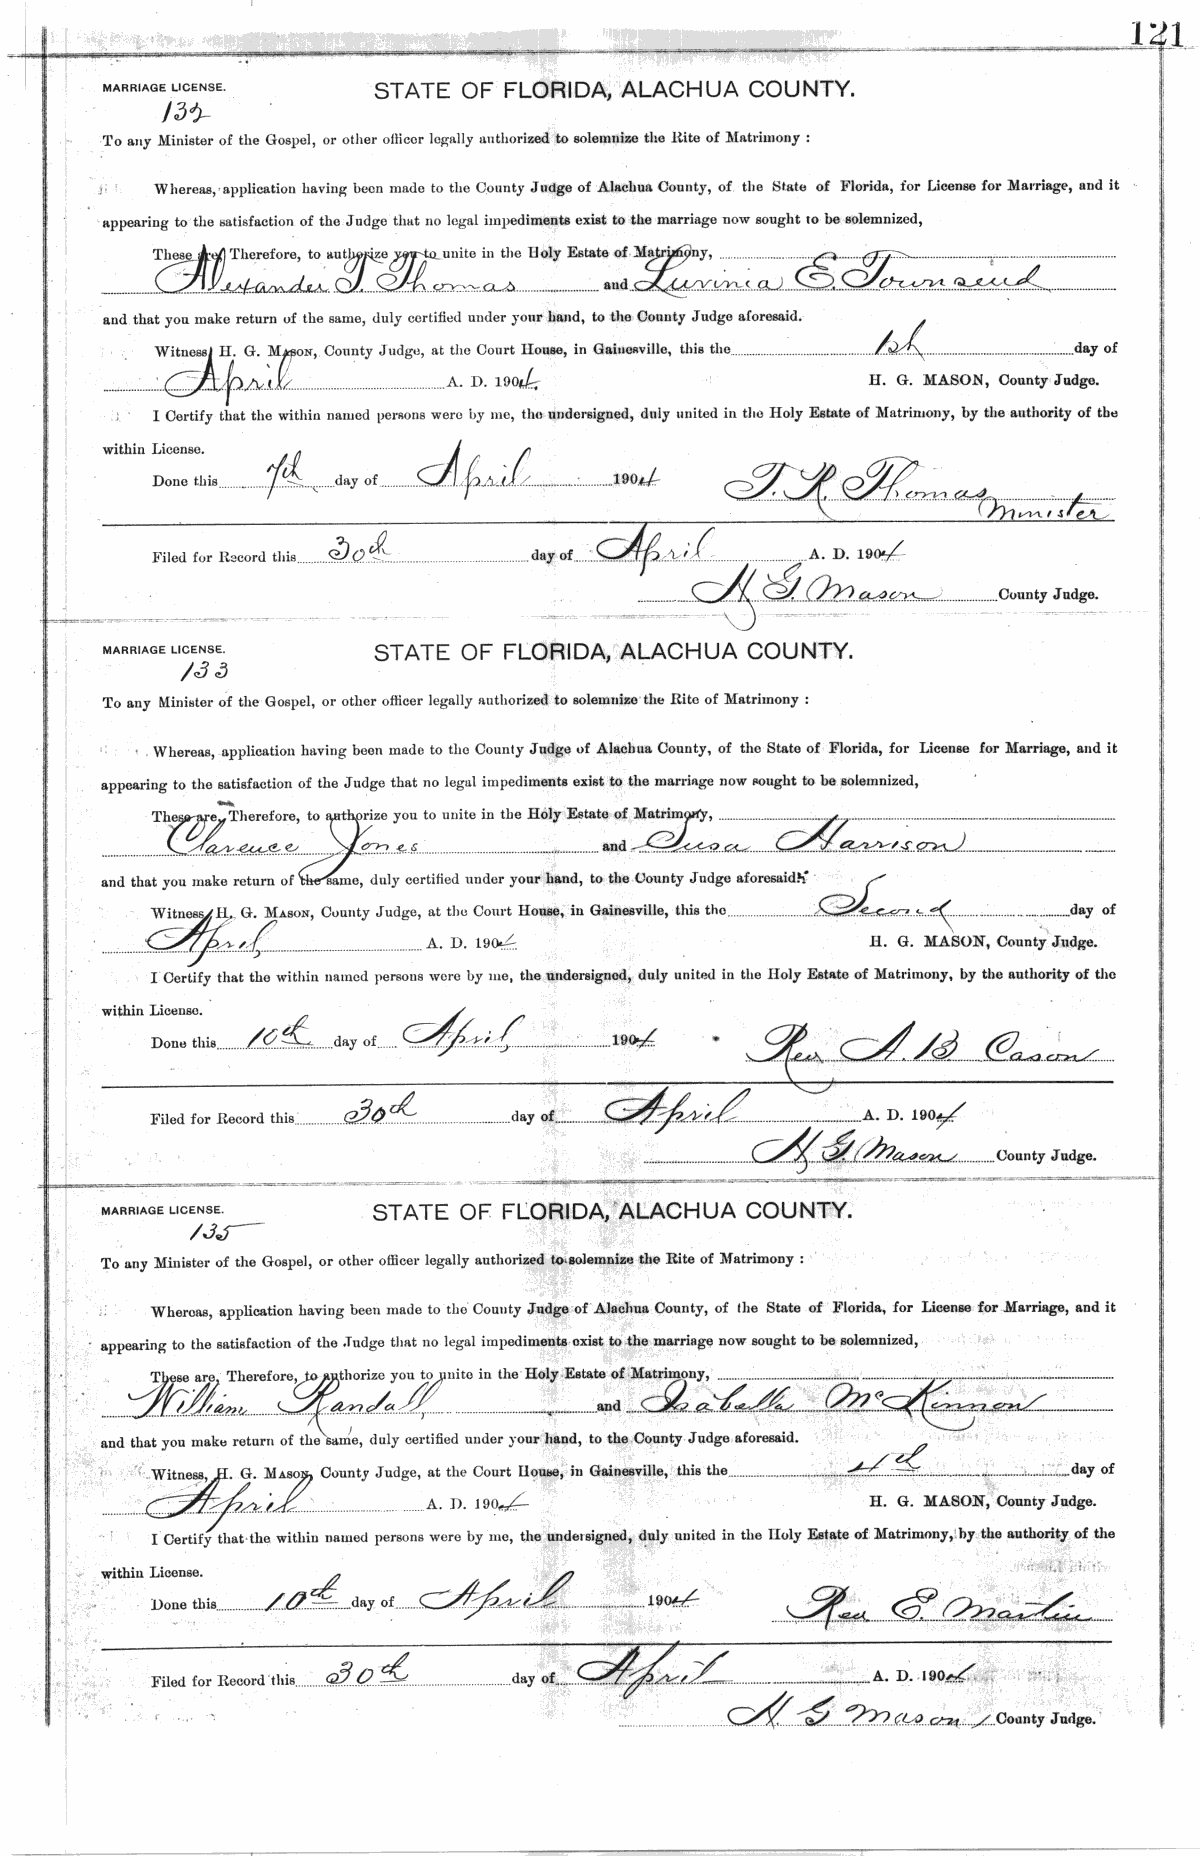 121
MARRIAGE LICENSE. STATE OF FLORIDA, ALACHUA COUNTY.
132
To any Minister of the Gospel, or other officer legally authorized to solemnize the Rite of Matrimony :
Whereas, application having been made to the County Judge of Alachua County, of the State of Florida, for License for Marriage, and it
appearing to the satisfaction of the Judge that no legal impediments exist to the marriage now sought to be solemnized,
These are, Therefore, to authorize you to unite in the Holy Estate of Matrimony,
Alexander T. Thomas and Luvinia E. Townsend
and that you make return of the same, duly certified under your hand, to the County Judge aforesaid.
Witness, H. G. MASON, County Judge, at the Court House, in Gainesville, this the 1st day of
April A. D. 1904. H. G. MASON, County Judge.
I Certify that the within named persons were by me, the undersigned, duly united in the Holy Estate of Matrimony, by the authority of the
within License.
Done this 7th day of April 1904 T. R. Thomas
Minister
Filed for Record this 30th day of April A. D. 1904
H. G. Mason County Judge.
MARRIAGE LICENSE. STATE OF FLORIDA, ALACHUA COUNTY.
133
To any Minister of the Gospel, or other officer legally authorized to solemnize the Rite of Matrimony :
Whereas, application having been made to the County Judge of Alachua County, of the State of Florida, for License for Marriage, and it
appearing to the satisfaction of the Judge that no legal impediments exist to the marriage now sought to be solemnized,
These are, Therefore, to authorize you to unite in the Holy Estate of Matrimony,
Clarence Jones and Susa Harrison
and that you make return of the same, duly certified under your hand, to the County Judge aforesaid.
Witness, H. G. MASON, County Judge, at the Court House, in Gainesville, this the Second day of
April A. D. 1904 H. G. MASON, County Judge.
I Certify that the within named persons were by me, the undersigned, duly united in the Holy Estate of Matrimony, by the authority of the
within License.
Done this 10th day of April 1904 Rev A. B. Cason
Filed for Record this 30th day of April A. D. 1904
H. G. Mason County Judge.
MARRIAGE LICENSE. STATE OF FLORIDA, ALACHUA COUNTY.
135
To any Minister of the Gospel, or other officer legally authorized to solemnize the Rite of Matrimony :
Whereas, application having been made to the County Judge of Alachua County, of the State of Florida, for License for Marriage, and it
appearing to the satisfaction of the Judge that no legal impediments exist to the marriage now sought to be solemnized,
These are, Therefore, to authorize you to unite in the Holy Estate of Matrimony,
William Randall and Isabella McKinnon
and that you make return of the same, duly certified under your hand, to the County Judge aforesaid.
Witness, H. G. MASON, County Judge, at the Court House, in Gainesville, this the 4th day of
April A. D. 1904 H. G. MASON, County Judge.
I Certify that the within named persons were by me, the undersigned, duly united in the Holy Estate of Matrimony, by the authority of the
within License.
Done this 10th day of April 1904 Rev E. Martin
Filed for Record this 30th day of April A. D. 1904
H. G Mason County Judge.